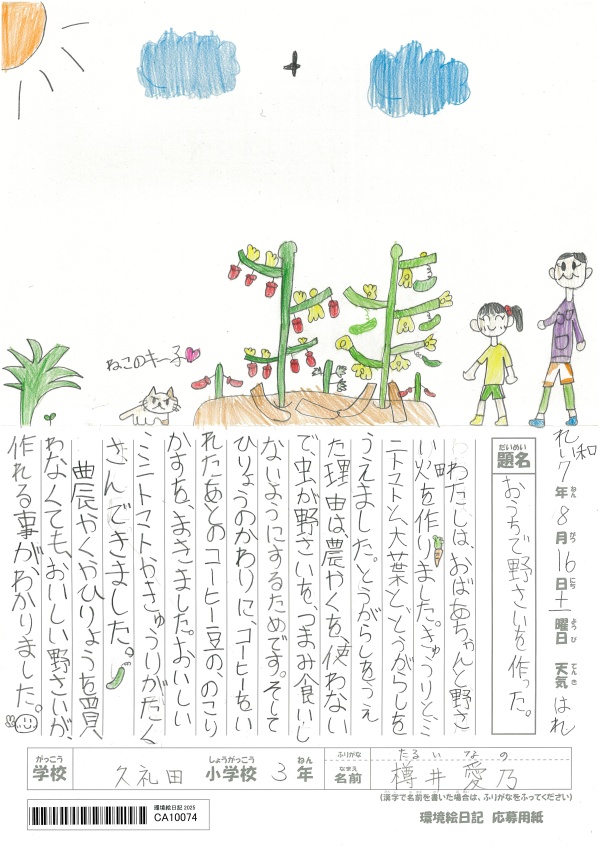 ねこのキー子
れい和7年8月16日土曜日 天気 はれ
ねん がつ にち ようび てんき
だいめい
題名
おうちで野さいを作った。
わたしは、おばあちゃんと野さ
い畑を作りました。きゅうりと、ミ
ニトマトと、大葉と、とうがらしを
うえました。とうがらしをうえ
た理由は、農やくを、使わない
で、虫が野さいを、つまみ食いし
ないようにするためです。そして
ひりょうのかわりに、コーヒーをい
れたあとのコーヒー豆の、のこり
かすを、まきました。おいしい
ミニトマトやきゅうりがたく
さんできました。
農やくやひりょうを買
わなくても、おいしい野さいが、
作れる事がわかりました。
がっこう しょうがっこう ねん ふりがな たるい なの
学校 久礼田 小学校 3年 なまえ 名前 樽井 愛乃
(漢字で名前を書いた場合は、ふりがなをふってください)
環境絵日記 2025
CA10074
環境絵日記 応募用紙